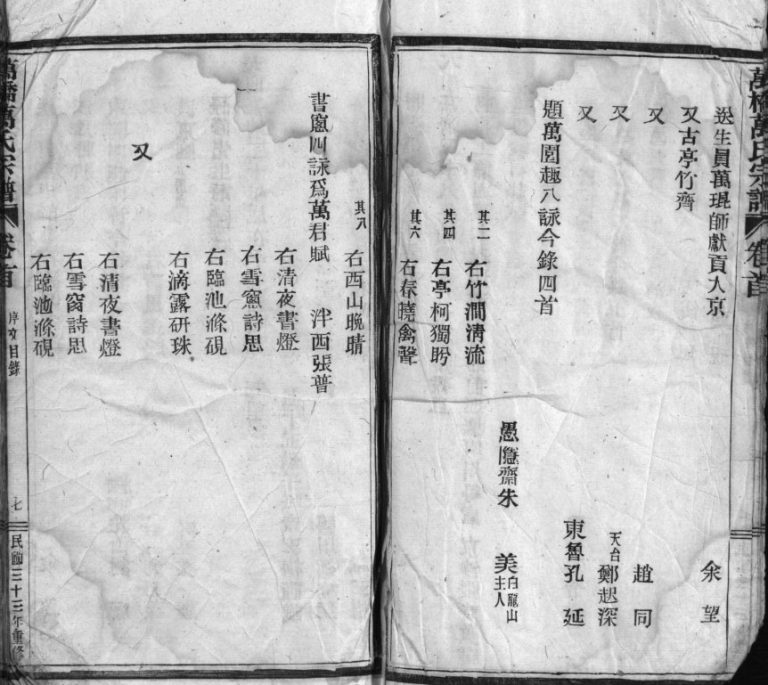 萬橋萬氏宗譜 卷首
送生員萬琨師獻貢入京 余望
又古亭竹齋
又 趙同
又 天台鄭起深
又 東魯孔延
題萬園趣八詠今錄四首 愚隱齋朱美 白龍山主人
其二 右竹澗清流
其四 右亭柯獨盻
其六 右春撓禽聲
其八 右西山晚晴
書窻四詠爲萬君賦 泮西張普
右清夜書燈
右雪窻詩思
右臨池滌硯
右滴露研珠
又
右清夜書燈
右雪窗詩思
右臨池滌硯
萬橋萬氏宗譜 卷首 序文目錄 七 民國三十三年重修